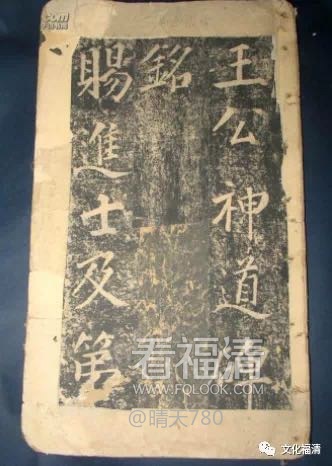 王公神道
銘
賜進士及第
看福清
@晴天780
文化福清